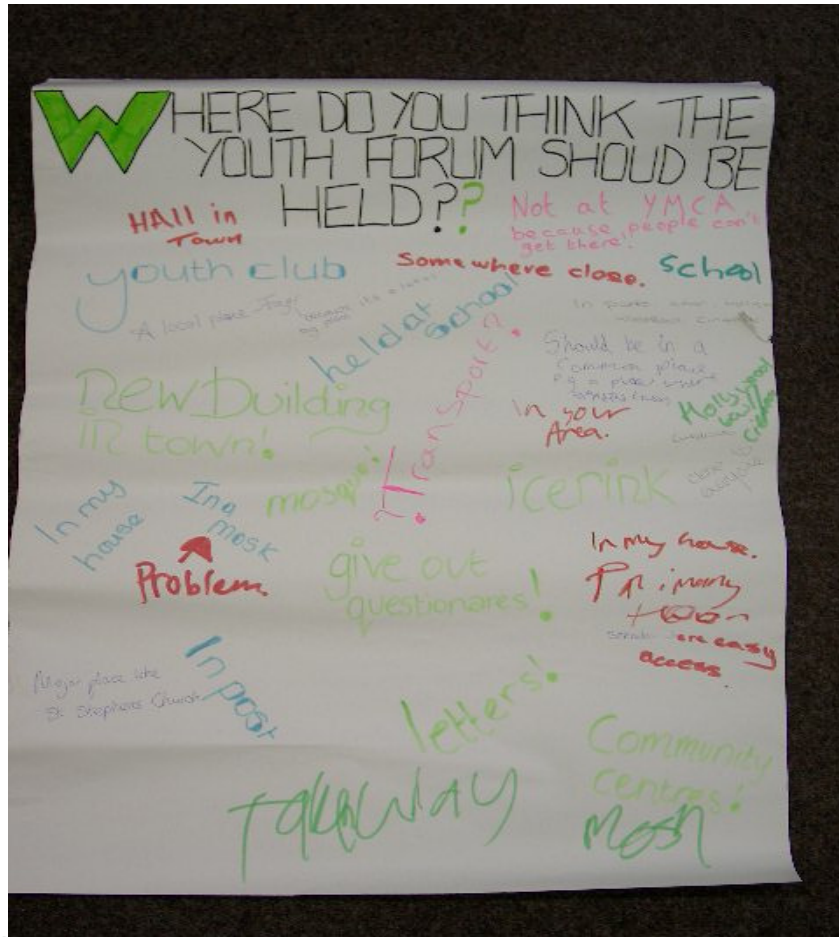 WHERE DO YOU THINK THE
YOUTH FORUM SHOUD BE
HELD??
HAll in
Town
Not at YMCA
because people can't
get there!
youth club
Somewhere close.
School
A local place
held at
school
Should be in a
Common place
e.g a place where
New building
in town!
?Transport?
In your
Area.
Hollywood
bowl
mosque!
icerink
close to
In my
house
In a
mosk
Problem.
give out
questionares!
In my house.
Primary
are easy
access.
Major place like
St Stephens Church
In post
letters!
Community
centres!
Takeway
Mosh